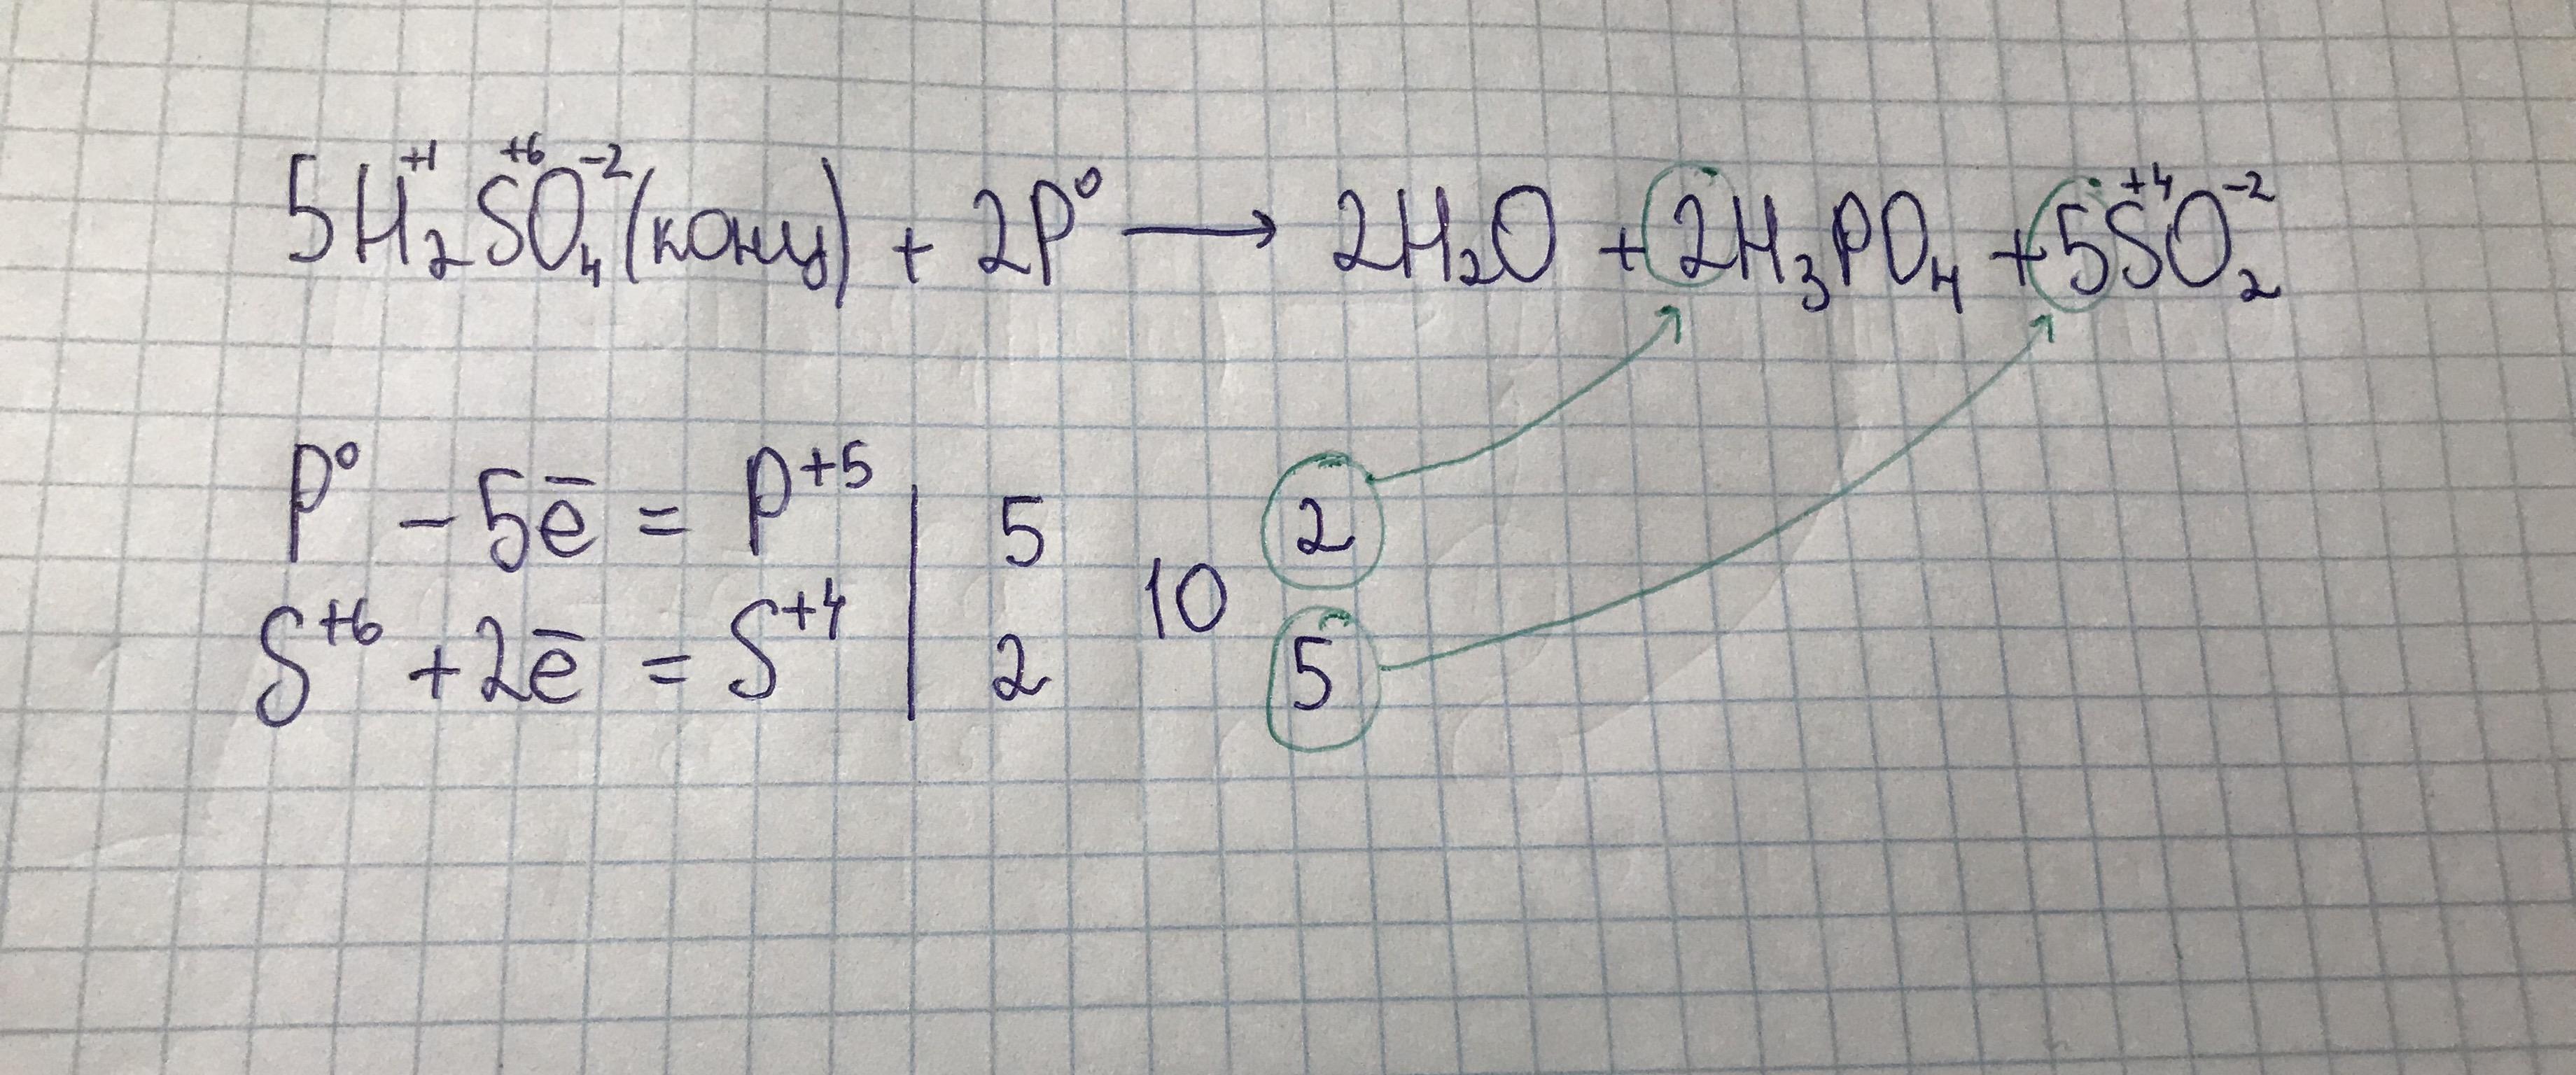 5H₂⁺¹S⁺⁶O₄⁻²(конц) + 2P⁰ → 2H₂O + 2H₃PO₄ + 5S⁺⁴O₂⁻²
P⁰ − 5ē = P⁺⁵ | 5 10 2
S⁺⁶ + 2ē = S⁺⁴ | 2 5